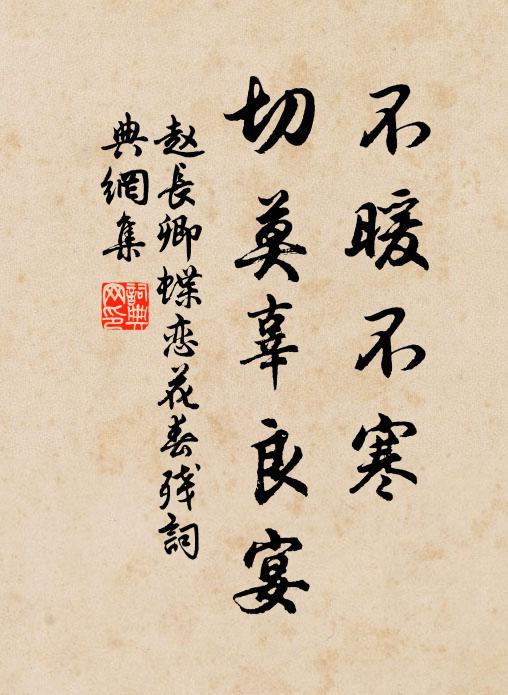 不暖不寒
切莫辜良宴
赵長卿蝶恋花春残詞
典網集
詞典
网印